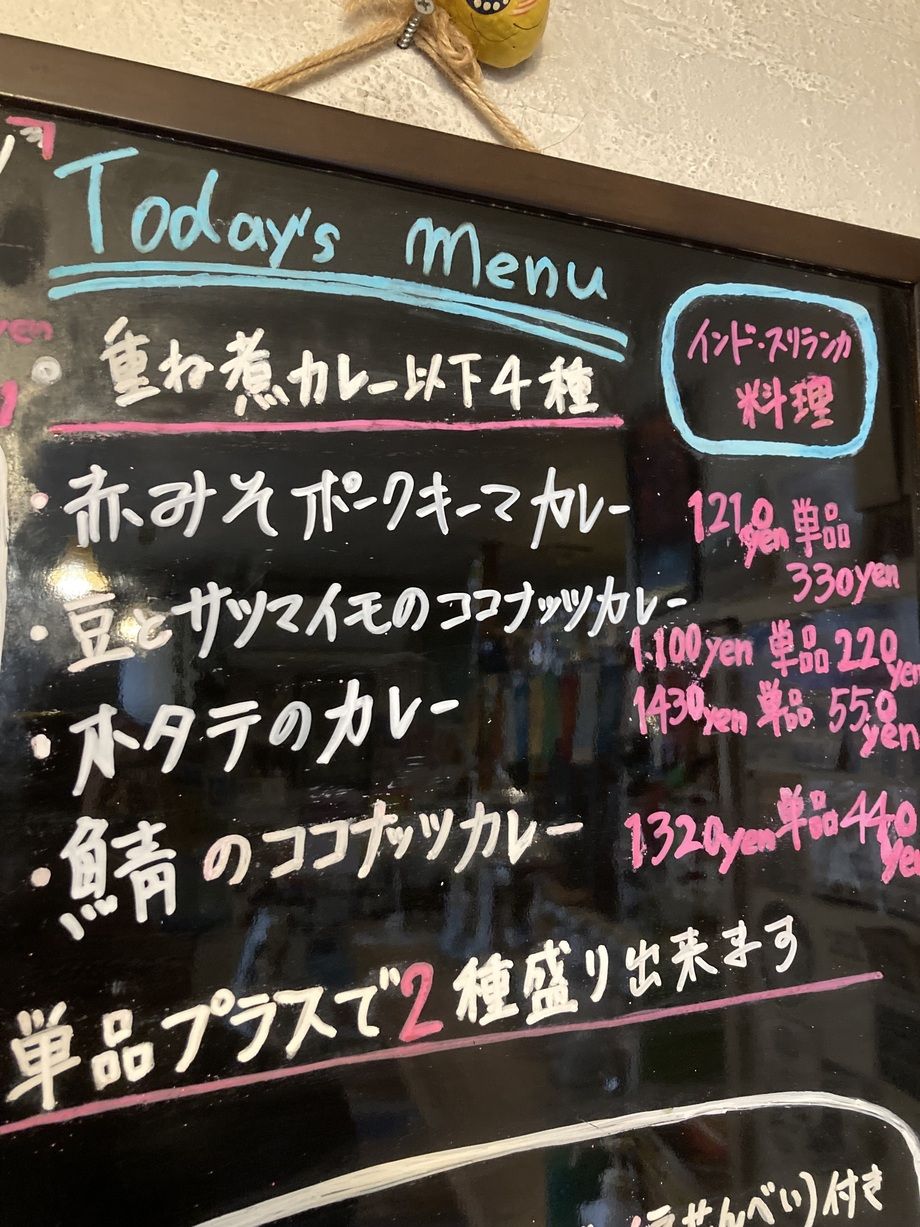 Today's Menu
インド・スリランカ
料理
重ね煮カレー以下4種
・赤みそポークキーマカレー 1210yen 単品
330yen
・豆とサツマイモのココナッツカレー
1.100yen 単品 220yen
・ホタテのカレー 1430yen 単品 550yen
・鯖のココナッツカレー 1320yen 単品 440yen
単品プラスで2種盛り出来ます
せんべい)付き
yen